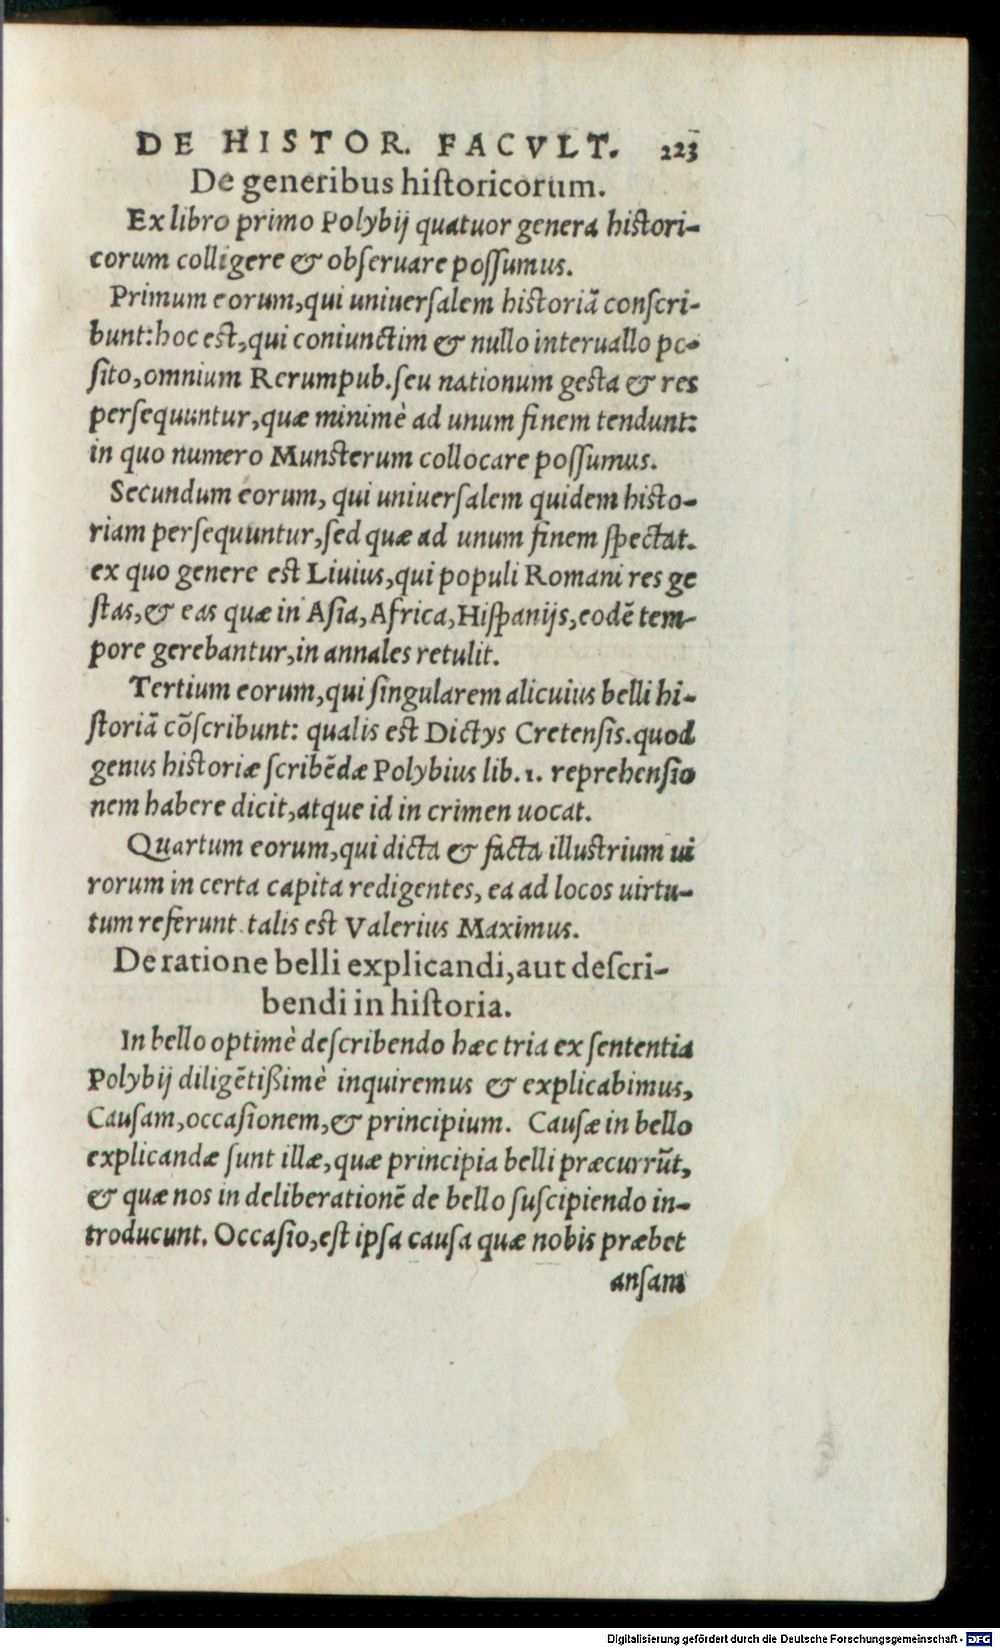 DE HISTOR. FACVLT. 223
De generibus hiſtoricorum.
Ex libro primo Polybij quatuor genera hiſtori-
corum colligere & obſeruare poſſumus.
Primum eorum,qui uniuerſalem hiſtoriā conſcri-
bunt:hoc eſt,qui coniunctim & nullo interuallo po-
ſito,omnium Rerumpub.ſeu nationum geſta & res
perſequuntur,quæ minimè ad unum finem tendunt:
in quo numero Munſterum collocare poſſumus.
Secundum eorum, qui uniuerſalem quidem hiſto-
riam perſequuntur,ſed quæ ad unum finem ſpectat.
ex quo genere eſt Liuius,qui populi Romani res ge
ſtas,& eas quæ in Aſia,Africa,Hiſpanijs,eodē tem-
pore gerebantur,in annales retulit.
Tertium eorum,qui ſingularem alicuius belli hi-
ſtoriā cōſcribunt: qualis eſt Dictys Cretenſis.quod
genus hiſtoriæ ſcribēdæ Polybius lib.1. reprehenſio
nem habere dicit,atque id in crimen uocat.
Quartum eorum,qui dicta & facta illuſtrium ui
rorum in certa capita redigentes, ea ad locos uirtu-
tum referunt.talis eſt Valerius Maximus.
De ratione belli explicandi,aut deſcri-
bendi in hiſtoria.
In bello optimè deſcribendo hæc tria ex ſententia
Polybij diligētißimè inquiremus & explicabimus,
Cauſam,occaſionem,& principium. Cauſæ in bello
explicandæ ſunt illæ,quæ principia belli præcurrūt,
& quæ nos in deliberationē de bello ſuſcipiendo in-
troducunt. Occaſio,eſt ipſa cauſa quæ nobis præbet
anſam
Digitalisierung gefördert durch die Deutsche Forschungsgemeinschaft - DFG